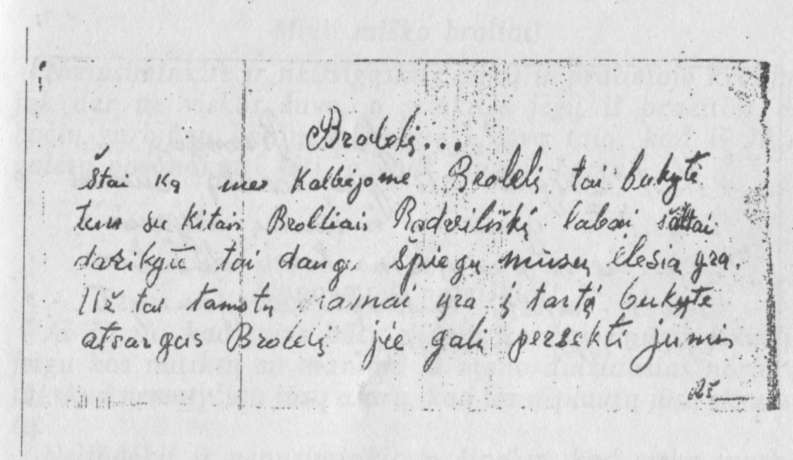 Brolelį...
štai ką mes kalbėjome Brolelį tai bukytė
ten su kitais Brolliais Radviliškį labai šaltai
darikytė tai daug špiegų mūsų ėlesią yra.
Už tai tamstų ramai yra į tartį bukytė
atsargus Brolelį jie gali persekti jumis